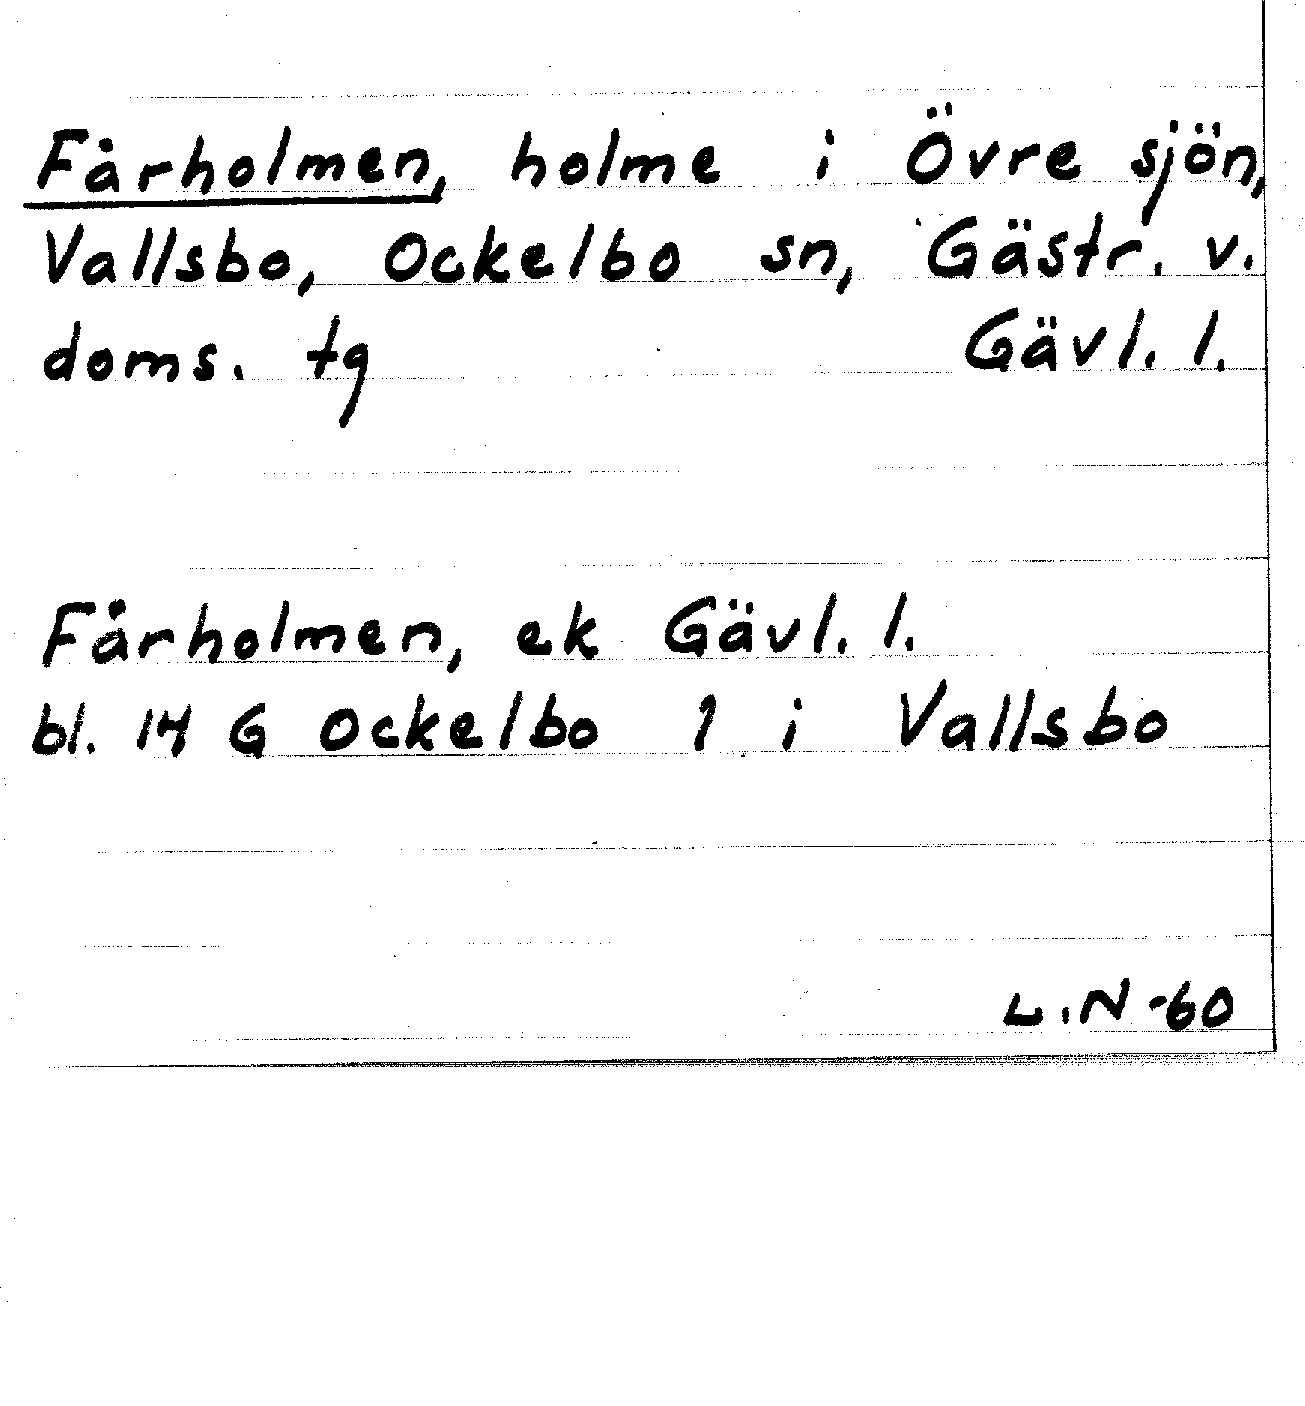 Fårholmen, holme i Övre sjön,
Vallsbo, Ockelbo sn, Gästr. v.
doms. tg Gävl. l.
Fårholmen, ek Gävl. l.
bl. 14 G Ockelbo 1 i Vallsbo
L.N -60